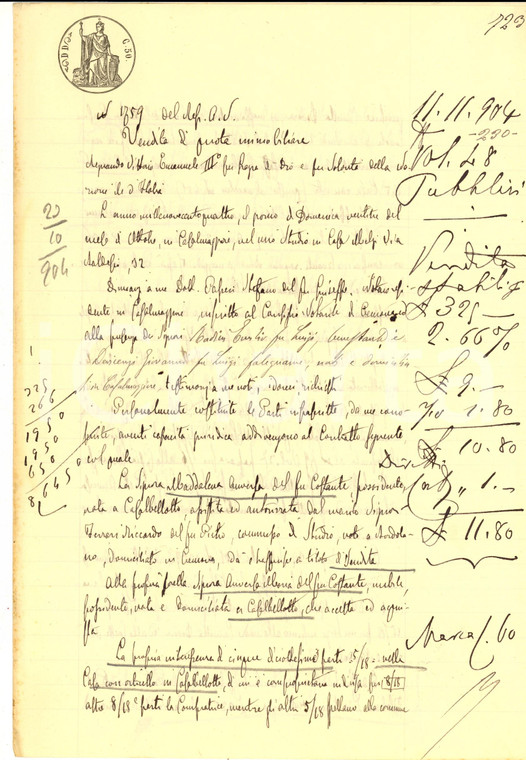 723
C. 50.
N 1359 del Rep. A. N.
Vendita di quote immobiliare
Regnando Vittorio Emanuele III° per grazia di Dio e per Volontà della Na
zione Re d'Italia
L'anno millenovecentoquattro, il giorno di Domenica ventitre del
mese di Ottobre in Casalmaggiore, nel mio Studio in Casa Via
32
Dinanzi a me Dott. Stefano del fu Giuseppe, Notaro resi
dente in Casalmaggiore inscritto al Consiglio Notarile di Cremona
alla presenza dei Signori fu Luigi, benestante e
Giovanni fu Luigi falegname, nati e domiciliati
in Casalmaggiore, testimonj a me noti, idonei richiesti
Personalmente costituite le Parti infrascritte, da me cono
sciute, aventi capacità giuridica addivengono al Contratto seguente
col quale
La Signora Maddalena Anversa del fu Costante, possidente,
nata a Casalbellotto, assistita ed autorizzata dal marito Signor
Ferrari Riccardo del fu Pietro, commesso di Studio, nato a
domiciliato in Cremona, dà e trasferisce a titolo di Vendita
Alla propria sorella Signora Anversa Maria del fu Costante, nubile,
possidente, nata e domiciliata a Casalbellotto, che accetta ed acqui
sta
La propria interessenza di cinque diciottesime parti 5/18 - nella
Casa con orticello in Casalbellotto, di cui è comproprietaria indivisa per 8/18
altre 8/18 parti la Compratrice, mentre gli altri 5/18 alla comune
23
10
904
325
266
1950
1950
650
8,6450
11.11.904
290
Vol. 48
Pubblici
Vendita
stabili
£ 325 -
2.66%
£ 9 -
1.80
£ 10.80
Diritti
1. -
£ 11.80
Marca £. 60